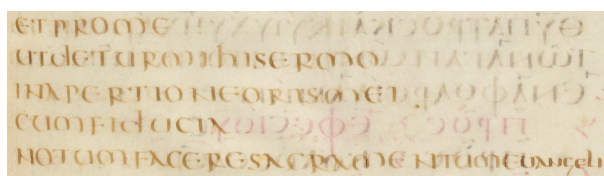 ET PROME
UTDETURMIHISERMO
INAPERTIONEORISMEI
CUMFIDUCIA
NOTUMFACERESACRAMENTUMEUANGELI